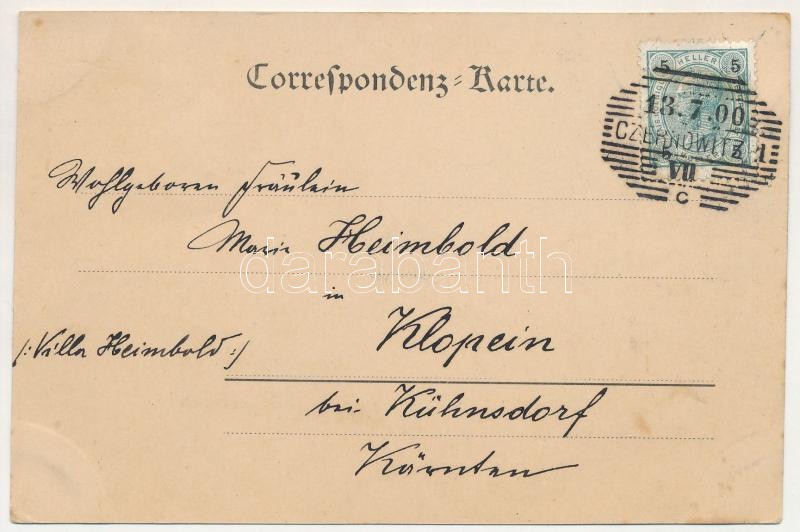 Correspondenz-Karte.
5 HELLER 5
13.7.00
CZERNOWITZ 1
VII
C
Wohlgeboren Fräulein
Marie Heimbold
in
Klopein
(:Villa Heimbold:)
bei Kühnsdorf
Kärnten
darabanth